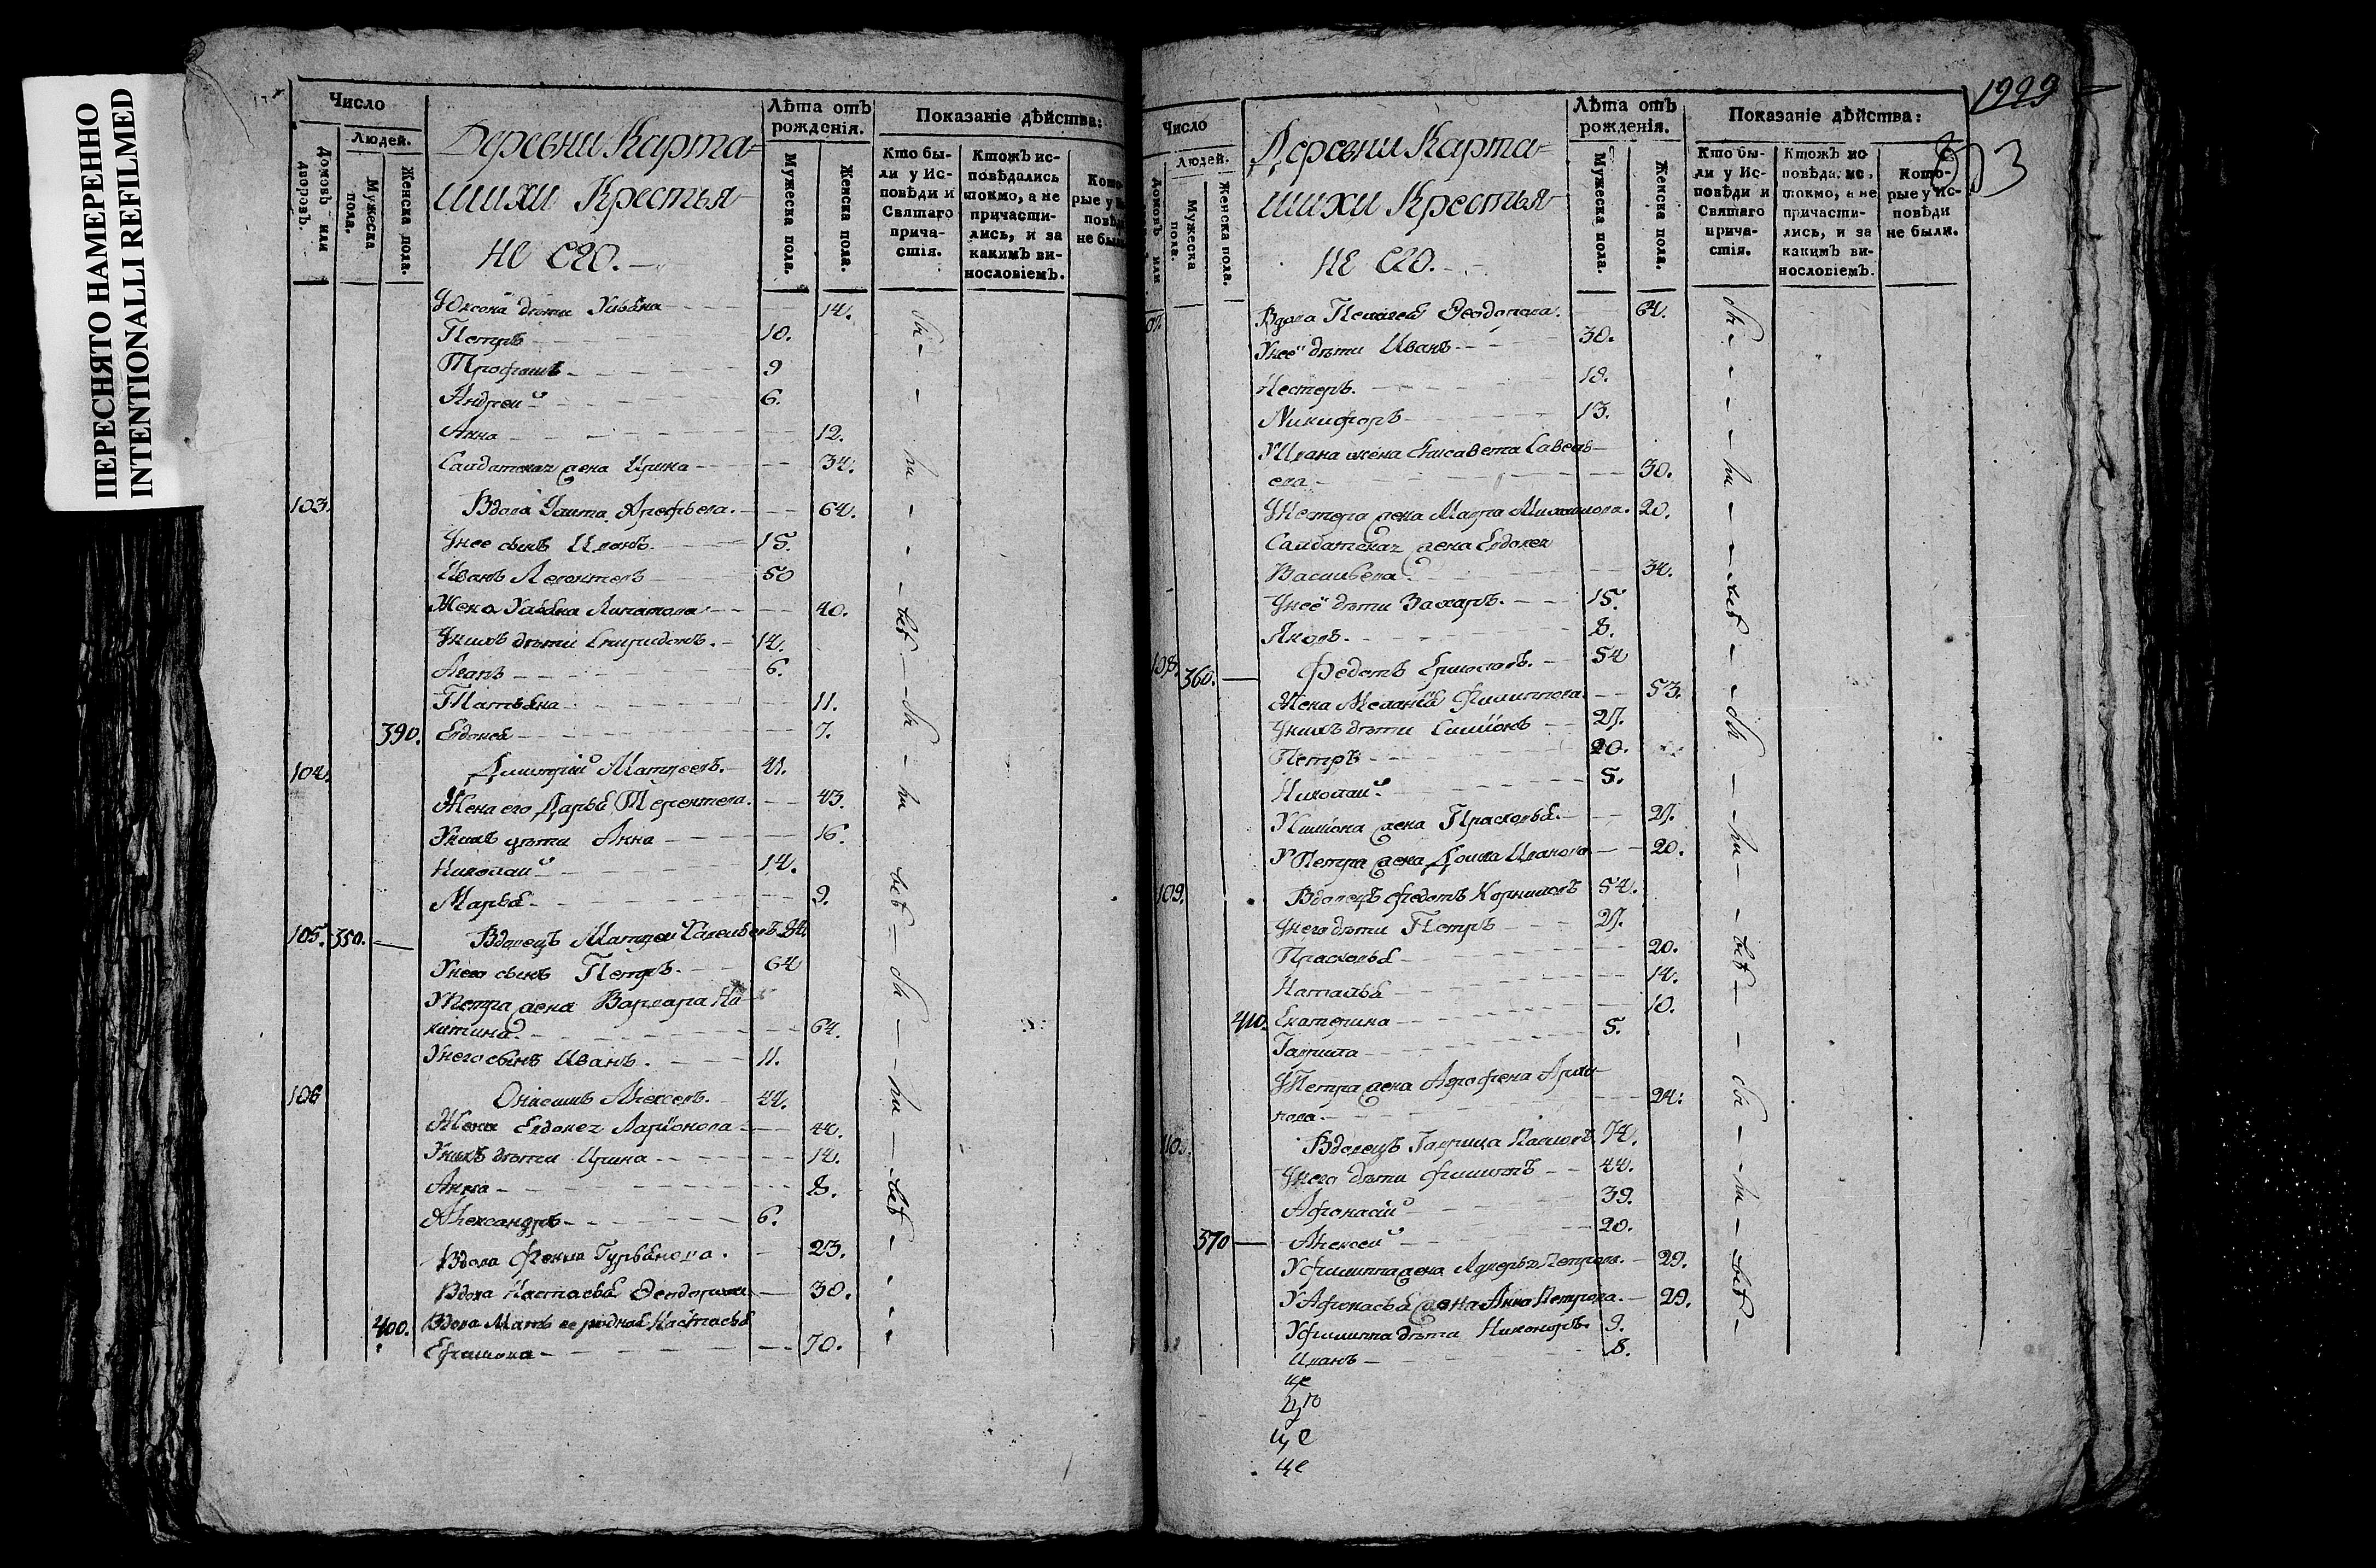 ПЕРЕСНЯТО НАМЕРЕННО
INTENTIONALLI REFILMED
Число
Людей.
Домовъ или дворовъ.
Мужеска пола.
Женска пола.
Деревни Карта-
шихи Крестья-
не его.
Лѣта отъ рожденія.
Мужеска пола.
Женска пола.
Показаніе дѣйства:
Кто бы-
ли у Ис-
повѣди и
Святаго
прича-
стія.
Ктожъ ис-
повѣдались
токмо, а не
причасти-
лись, и за
какимъ ви-
нословіемъ.
Кото-
рые у
не были
дѣти Ульяна 14.
Петръ 10.
Трофимъ 9
Андрей 6.
Анна 12.
Салдатская жена Ирина 34.
103. Вдова Арефьева. 64.
У нее сынъ Иванъ. 15.
Иванъ Леонтевъ 50
Жена Ульяна 40.
У нихъ дѣти Спиридонъ. 14.
6.
Татьяна 11.
390. Евдокея 7.
104. Димитрій Матвеевъ. 41.
Жена его Дарья Терентева. 43.
У нихъ дѣти Анна 16.
Николай 14.
Марья 9.
105. 350. Вдовецъ Матвеи Савельевъ 84.
У него сынъ Петръ. 64
У Петра жена Варвара Ни-
китина 64.
У него сынъ Иванъ. 11.
106 Онисимъ Алексеевъ. 44.
Жена Евдокея Ларионова 44.
У нихъ дѣти Ирина 14.
Анна 8.
Александръ 6.
Вдова Фекла 23.
Вдова Настасья Ѳеодорова 30.
400. Вдова Мать ее родная Настасья
Ефимова 70.
1229
Число
Людей.
Домовъ или
Мужеска пола.
Женска пола.
Деревни Карта-
шихи Крестья-
не его.
Лѣта отъ рожденія.
Мужеска пола.
Женска пола.
Показаніе дѣйства:
Кто бы-
ли у Ис-
повѣди и
Святаго
прича-
стія.
Ктожъ ис-
повѣда. ис,
токмо, а не
причасти-
лись, и за
какимъ ви-
нословіемъ.
Кото-
рые у Ис-
повѣди
не были.
Вдова Пелагея Ѳеодорова. 64.
У нее дѣти Иванъ 30.
Нестеръ. 18.
Никифоръ 13.
У Ивана жена Елисавета Савель-
ева 30.
У Нестера жена Марфа Михайлова. 20.
Салдатская жена Евдокея
Васильева 34.
У нее дѣти Захаръ. 15.
Яковъ. 8.
108. 360. Федотъ Ермолаевъ. 54
Жена Меланья Филиппова. 53.
У нихъ дѣти Симіонъ 27.
Петръ 20.
Николай 5.
У Симіона жена Прасковья 27.
У Петра жена Домна Иванова 20.
109. Вдовецъ Федотъ Корниловъ 54.
У него дѣти Петръ 27.
Прасковья 20.
Наталья 14.
410. Екатерина 10.
Гаврила 5.
У Петра жена Агрофена
24.
110. Вдовецъ Гаврила 74.
У него дѣти Филиппъ 44.
Афонасій 39.
370 Алексей 20.
У Филиппа жена Петрова. 29.
У Афонасья жена Анна Петрова. 29.
У Филиппа дѣти Никоноръ. 9.
Иванъ 8.